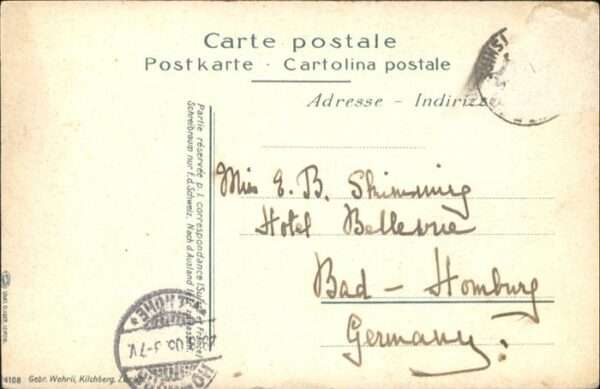 Carte postale
Postkarte · Cartolina postale
Adresse – Indirizzo
Partie réservée p. l. correspondance (Suisse et France)
Schreibraum nur f. d. Schweiz. Nach d Ausland
Miss E. B. Skimming
Hotel Bellevue
Bad – Homburg
Germany.
HÖHE
4108 Gebr. Wehrli, Kilchberg,